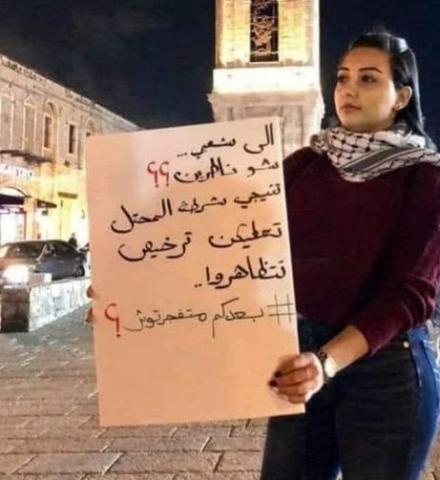 الى شعبي...
شو ناطرين ؟؟
تتيجي شرطة المحتل
تعطيكن ترخيص
تتظاهروا..
#بعدكم متفجرتوش؟